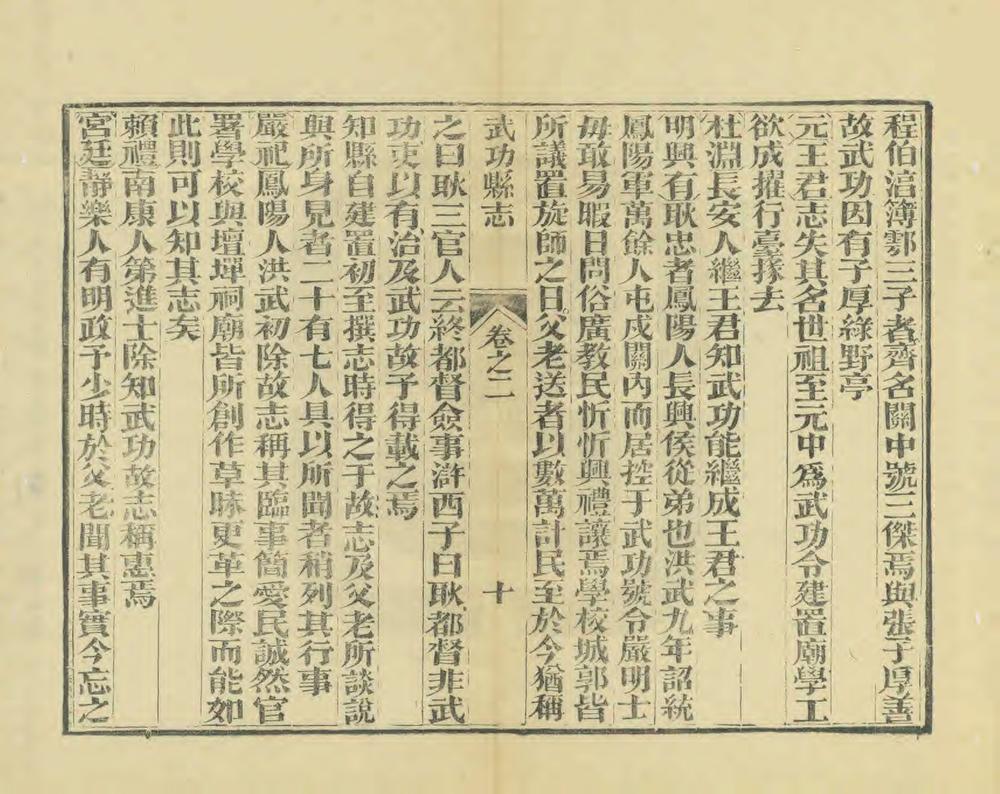 程伯淳簿鄠三子者齊名關中號三傑焉與張子厚善
故武功因有子厚綠野亭
元王君志失其名世祖至元中為武功令建置廟學工
欲成擢行臺掾去
杜淵長安人繼王君知武功能繼成王君之事
明興有耿忠者鳳陽人長興侯從弟也洪武九年詔統
鳳陽軍萬餘人屯戍關內而居控于武功號令嚴明士
毋敢易暇日問俗廣教民忻忻興禮讓焉學校城郭皆
所議置旋師之日父老送者以數萬計民至於今猶稱
武功縣志 卷之二 十
之曰耿三官人云終都督僉事滸西子曰耿都督非武
功吏以有治及武功故予得載之焉
知縣自建置初至撰志時得之于故志及父老所談說
與所身見者二十有七人具以所聞者稍列其行事
嚴祀鳳陽人洪武初除故志稱其臨事簡愛民誠然官
署學校與壇墠祠廟皆所創作草昧更革之際而能如
此則可以知其志矣
賴禮南康人第進士除知武功故志稱惠焉
宮廷靜樂人有明政予少時於父老聞其事實今忘之